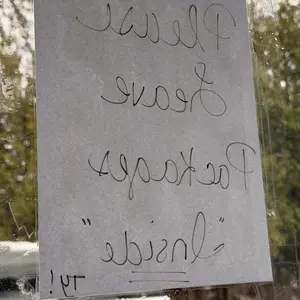 Please
Leave
Packages
"Inside"
TY!